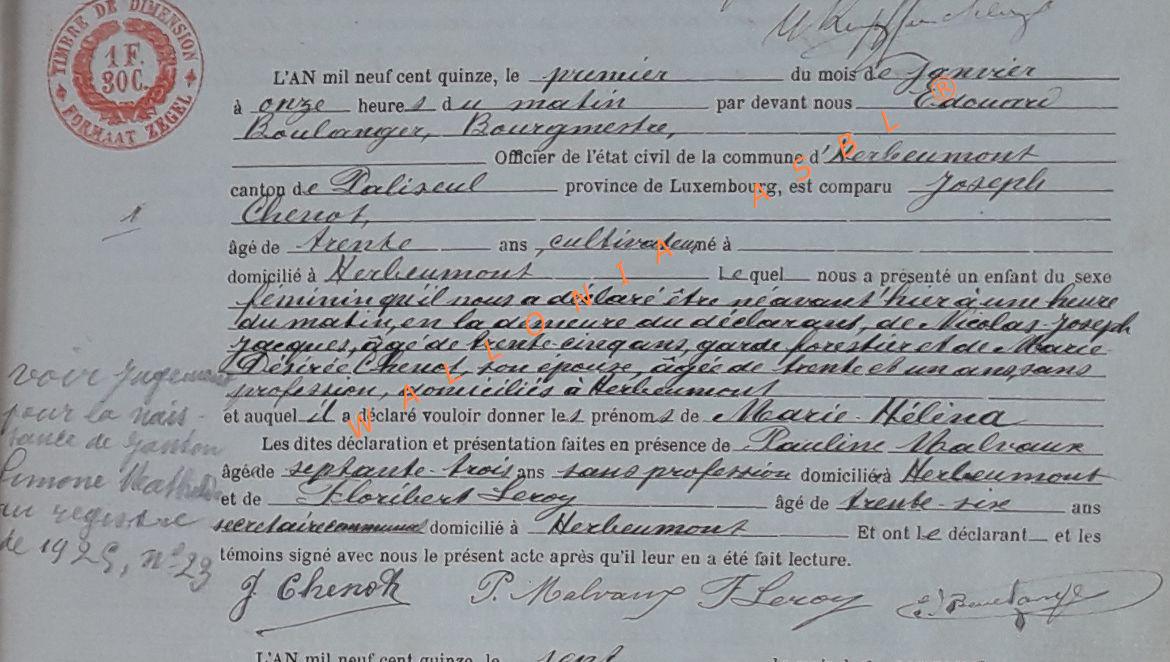 TIMBRE DE DIMENSION
1 F.
30C.
FORMAAT ZEGEL
L'AN mil neuf cent quinze, le premier du mois de Janvier
à onze heures du matin par devant nous Edouard
Boulanger, Bourgmestre,
Officier de l'état civil de la commune d'Herbeumont
canton de Paliseul province de Luxembourg, est comparu Joseph
Chenot,
1
âgé de trente ans, cultivateur, né à
domicilié à Herbeumont Lequel nous a présenté un enfant du sexe
féminin qu'il nous a déclaré être né avant hier à une heure
du matin, en la demeure du déclarant, de Nicolas-Joseph
Jacques, âgé de trente cinq ans, garde forestier et de Marie-
Désirée Chenot, son épouse, âgée de trente et un ans, sans
profession, domiciliés à Herbeumont
et auquel il a déclaré vouloir donner les prénoms de Marie-Héléna
Les dites déclaration et présentation faites en présence de Pauline Malvaux
âgée de septante-trois ans sans profession domiciliée à Herbeumont
et de Floribert Leroy âgé de trente-six ans
secrétaire communal domicilié à Herbeumont Et ont le déclarant et les
témoins signé avec nous le présent acte après qu'il leur en a été fait lecture.
voir jugement
pour la nais-
sance de
Simone
au registre
de 1925, n° 23
J. Chenot P. Malvaux F Leroy
WALLONIA ASBL ®
L'AN mil neuf cent quinze, le sept